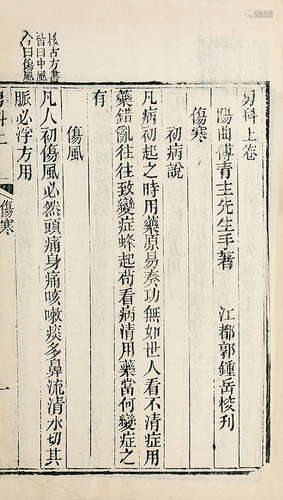 男科上卷
陽曲傅青主先生手著　江都郭鍾岳校刊
傷寒
初病說
凡病初起之時用藥原易奏功無如世人看不清症用
藥錯亂往往致變症蜂起苟看病清用藥當何變症之
有
傷風
凡人初傷風必然頭痛身痛咳嗽痰多鼻流清水切其
脈必浮方用
以古方書
皆曰中風
今曰傷風
男科上
傷寒
一